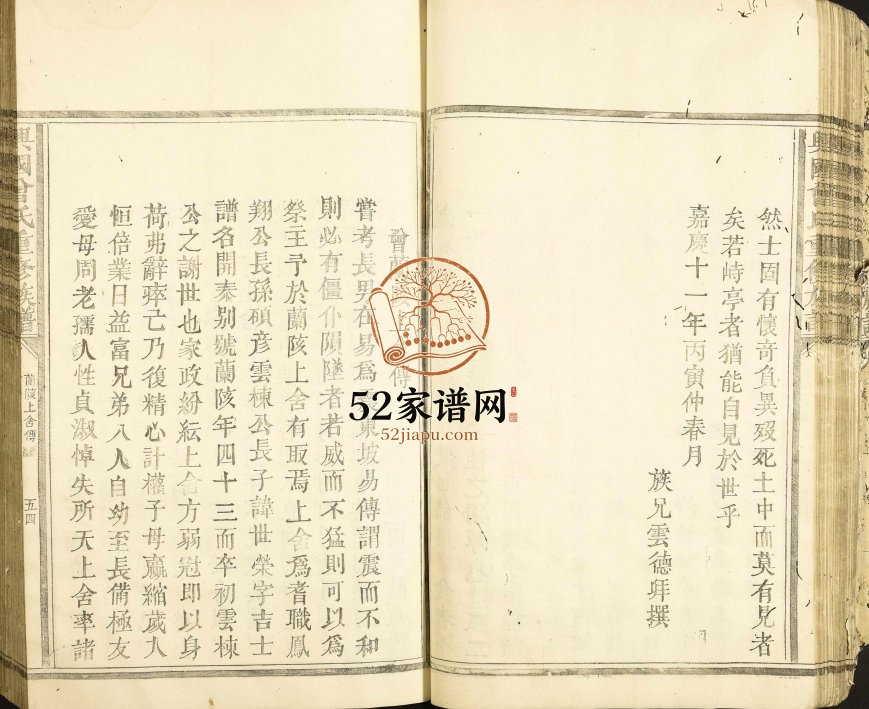 然士固有懷奇負異歿死土中而莫有見者
矣若峙亭者猶能自見於世乎
嘉慶十一年丙寅仲春月
族兄雲德拜撰
傳
嘗考長男在易爲東坡易傳謂震而不和
則必有僵仆隕墜者若威而不猛則可以爲
祭主予於蘭陔上舍有取焉上舍爲耆職鳳
翔公長孫碩彦雲棟公長子諱世榮字吉士
譜名開泰别號蘭陔年四十三而卒初雲棟
公之謝世也家政紛紜上舍方弱冠即以身
荷弗辭瘁已乃復精心計權子母贏縮歲久
恒倍業日益富兄弟八人自幼至長備極友
愛母周老孺人性貞淑悼失所天上舍率諸
興國曾氏重修族譜
蘭陔上舍傳
五四
52家谱网
52jiapu.com